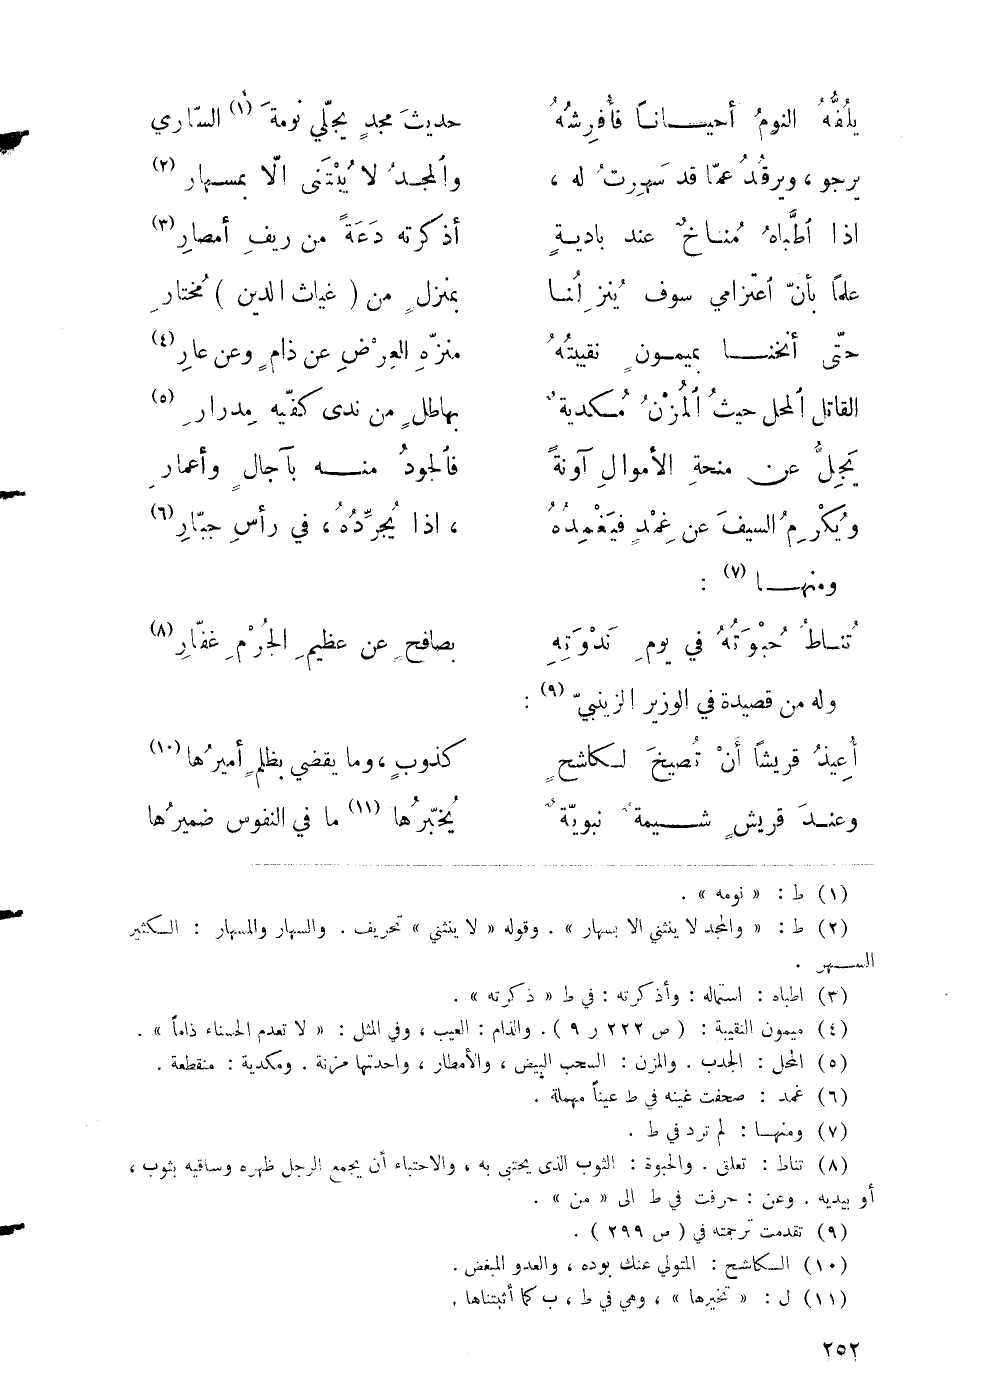 يلُفُّهُ النومُ أحيــانــاً فأُفرِشُهُ حديثَ مجدٍ يجلّي نومةَ (١) السّاري
يرجو ، ويرقُدُ عمّا قد سَهِرتُ له ، وٱلمجدُ لا يُبْتَنى الّا بمسهار (٢)
اذا ٱطَّباهُ مُنـاخٌ عند باديةٍ أذكرته دَعَةً من ريفِ أمصارِ (٣)
علماً بأنّ ٱعتزامي سوف يُنزِلُنـا بمنزلٍ من ( غياث الدين ) مُختارِ
حتّى أنخنــا بميمـونٍ نقيبتُهُ منزّهِ العِرْضِ عن ذامٍ وعن عارِ (٤)
القاتل ٱلمحل حيثُ ٱلمُزْنُ مُكدِيةٌ بهاطلٍ من ندى كفّيه مِدرارِ (٥)
يَجِلُّ عن منحةِ الأموالِ آونةً فٱلجودُ منــه بآجالٍ وأعمارِ
ويُكْرِمُ السيفَ عن غِمْدٍ فيَغْمِدُهُ ، اذا يُجرِّدُهُ ، في رأسِ جبّارِ (٦)
ومنهــا (٧) :
تُنـاطُ حُبْوَتُهُ في يومِ نَدْوَتِهِ بصافحٍ عن عظيمِ الجُرْمِ غفّارِ (٨)
وله من قصيدة في الوزير الزينبيّ (٩) :
أُعِيذُ قريشاً أَنْ تُصيخَ لـكاشحٍ كذوبٍ ، وما يقضي بظلمٍ أميرُها (١٠)
وعنـدَ قريشٍ شــيمةٌ نبويّةٌ يُخبّرُها (١١) ما في النفوس ضميرُها
(١) ط : « نومه » .
(٢) ط : « والمجد لا ينثني الا بسهار » . وقوله « لا ينثني » تحريف . والسهار والمسهار : الـكثير
الســهر .
(٣) اطباه : استماله : وأذكرته : في ط « ذكرته » .
(٤) ميمون النقيبة : ( ص ٢٢٢ ر ٩ ) . والذام : العيب ، وفي المثل : « لا تعدم الحسناء ذاماً » .
(٥) المحل : الجدب . والمزن : السحب البيض ، والأمطار ، واحدتها مزنة . ومكدية : منقطعة .
(٦) غمد : صحفت غينه في ط عيناً مهملة .
(٧) ومنهـا : لم ترد في ط .
(٨) تناط : تعلق . والحبوة : الثوب الذى يحتبى به ، والاحتباء أن يجمع الرجل ظهره وساقيه بثوب ،
أو بيديه . وعن : حرفت في ط الى « من » .
(٩) تقدمت ترجمته في ( ص ٢٩٩ ) .
(١٠) الـكاشح : المتولي عنك بوده ، والعدو المبغض .
(١١) ل : « تخيرها » ، وهي في ط ، ب كما أثبتناها .
٢٥٢